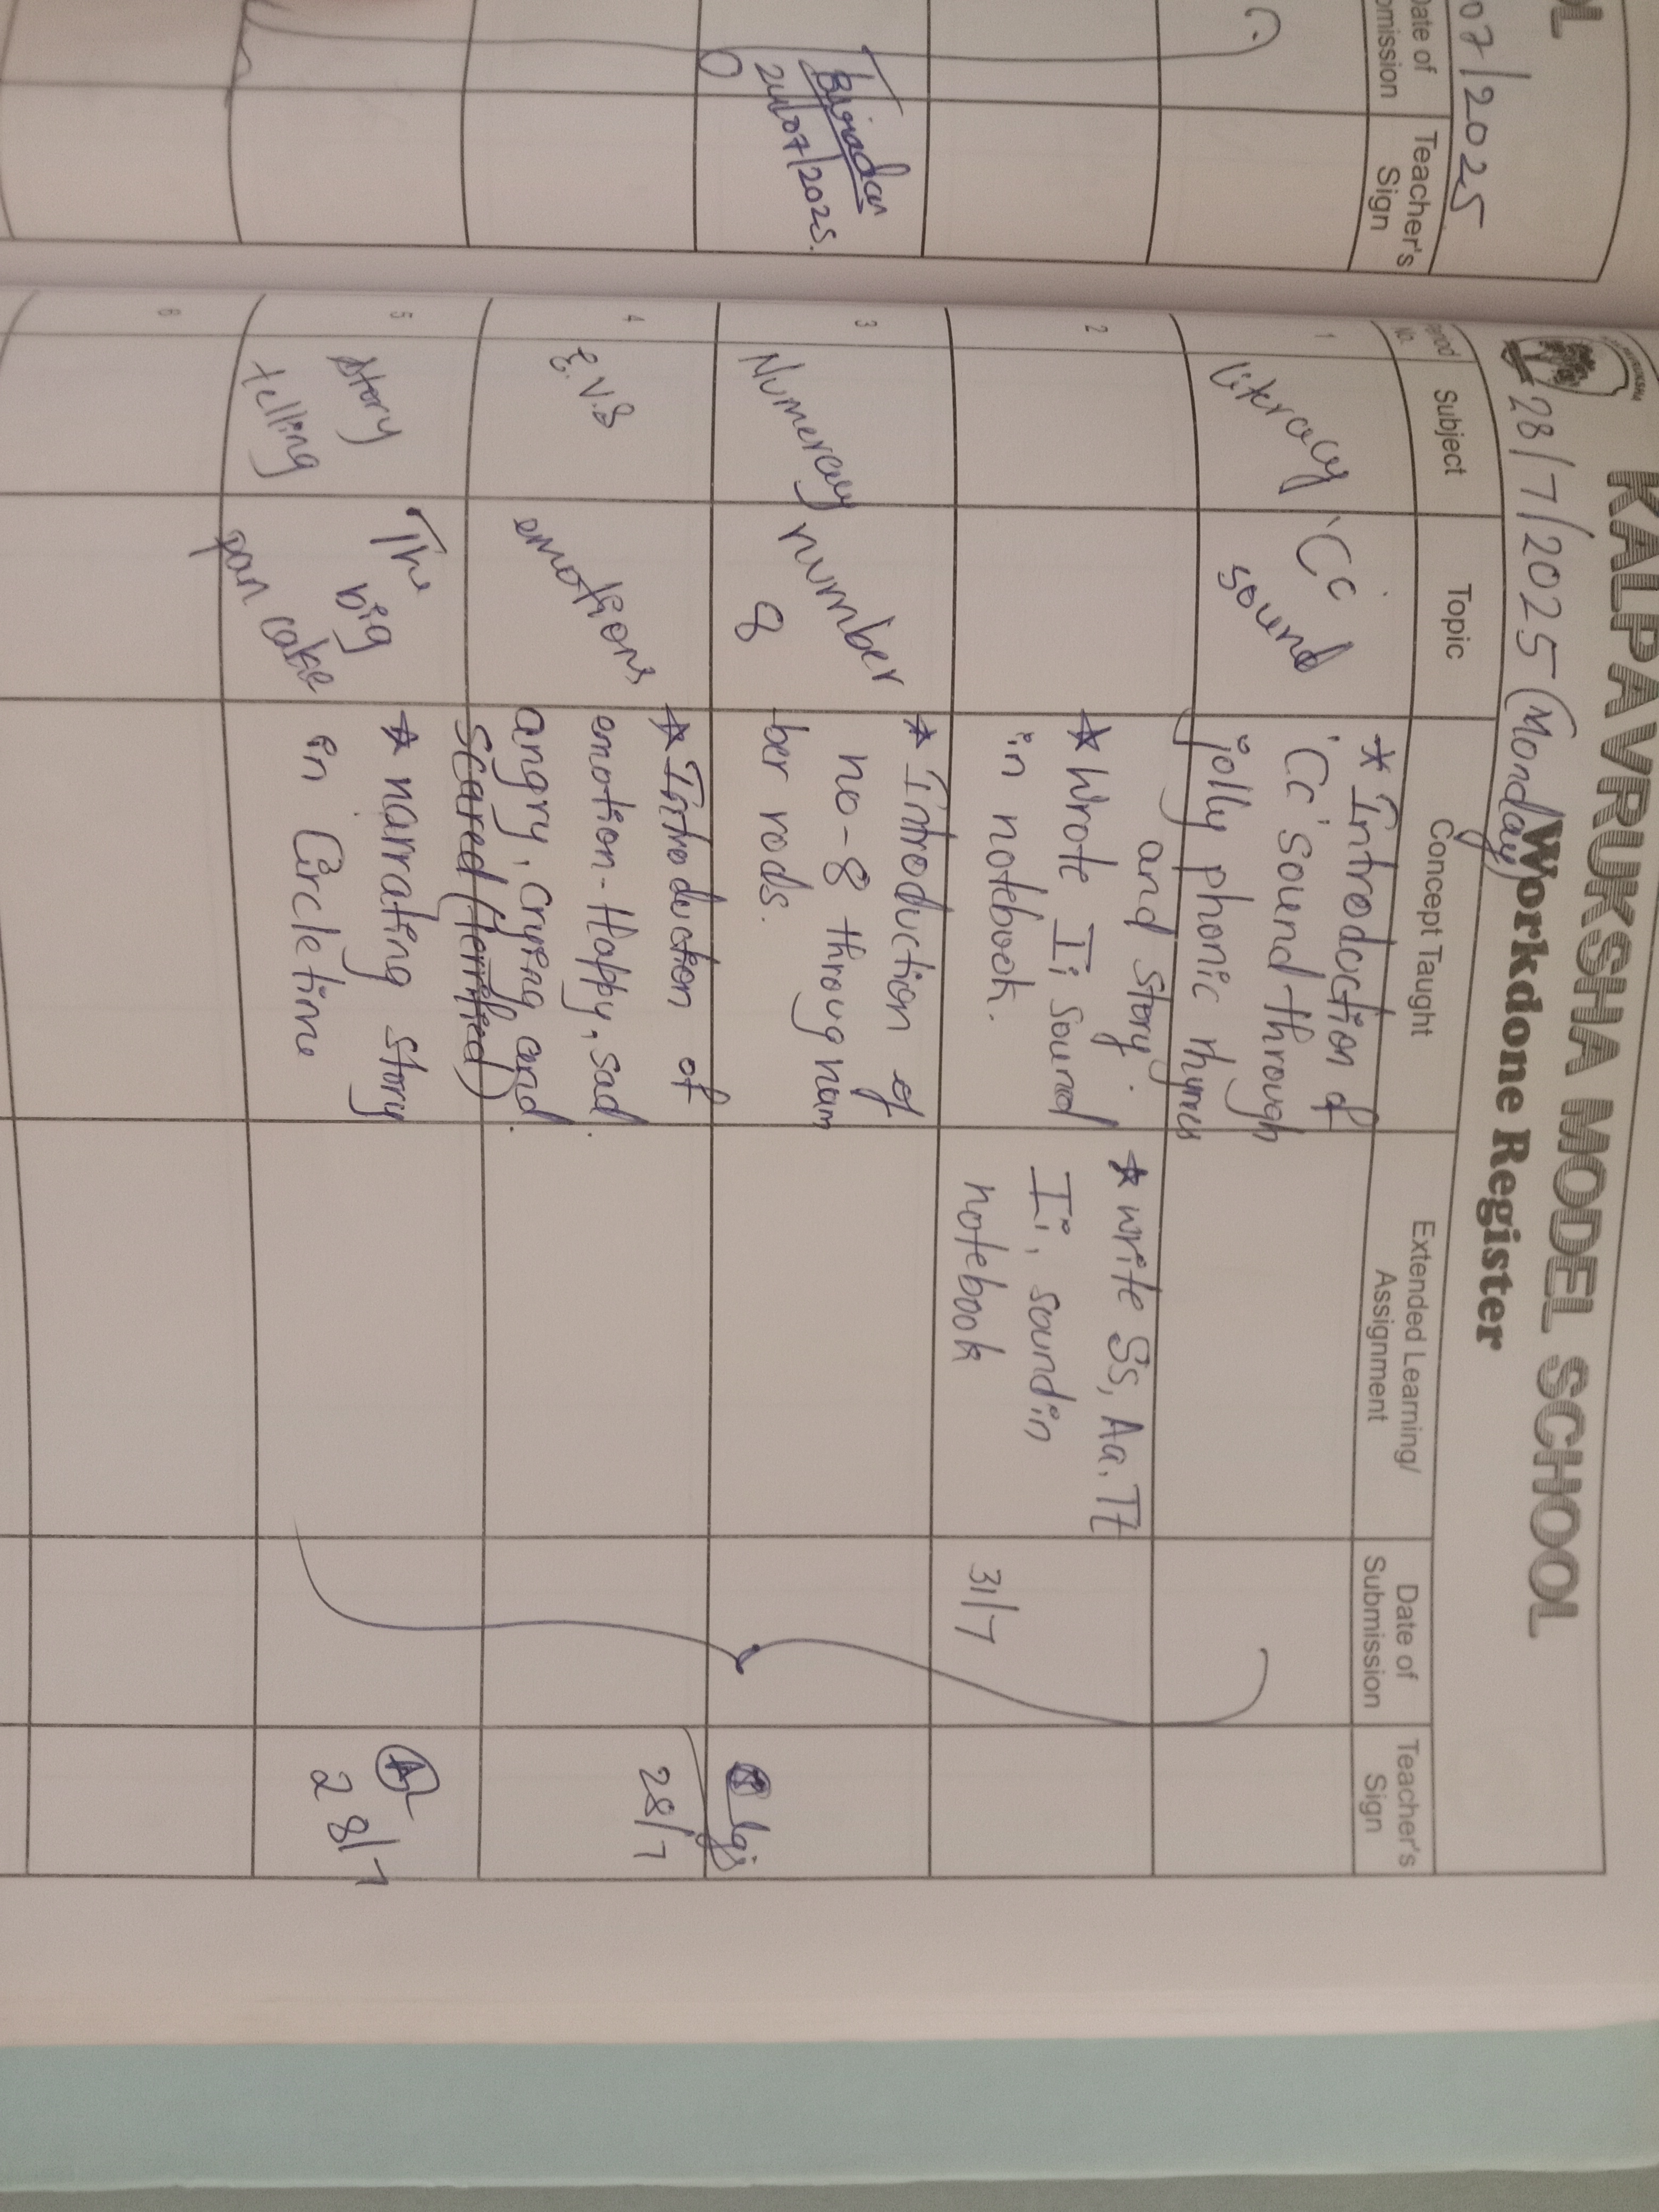 07/2025
Date of
Teacher's
Sign
24/07/2025.
KALPAVRUKSHA MODEL SCHOOL
Workdone Register
28/7/2025 (Monday)
Period No.
Subject
Topic
Concept Taught
Extended Learning/
Assignment
Date of
Submission
Teacher's
Sign
1
literacy
'Cc'
sound
* Introduction of
'Cc' sound through
jolly phonic rhymes
and story.
2
* Wrote Ii sound
in notebook.
* write Ss, Aa, Tt
Ii, sound in
notebook
31/7
3
Numeracy
number
8
* Introduction of
no-8 throug num
ber rods.
4
E.V.S
emotions
* Introduction of
emotion-Happy, sad
angry, crying and
scared (terrified)
28/7
5
story
telling
The
big
pan cake
* narrating story
in Circle time
28/7
6